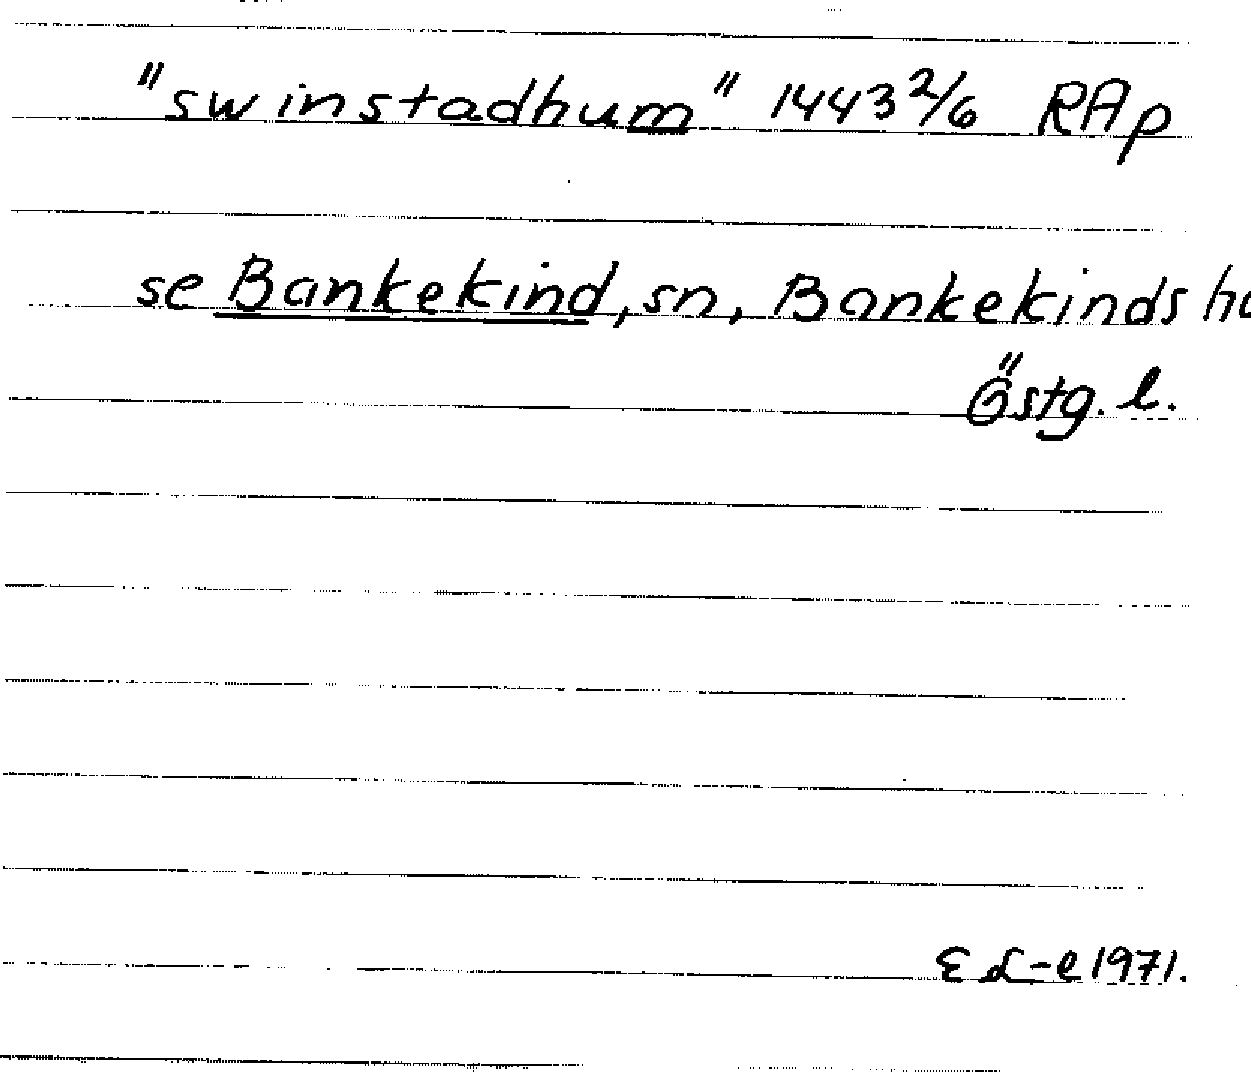 "swinstadhum" 1443 2/6 RAp
se Bankekind, sn, Bankekinds ha
Östg. l.
E L-e 1971.